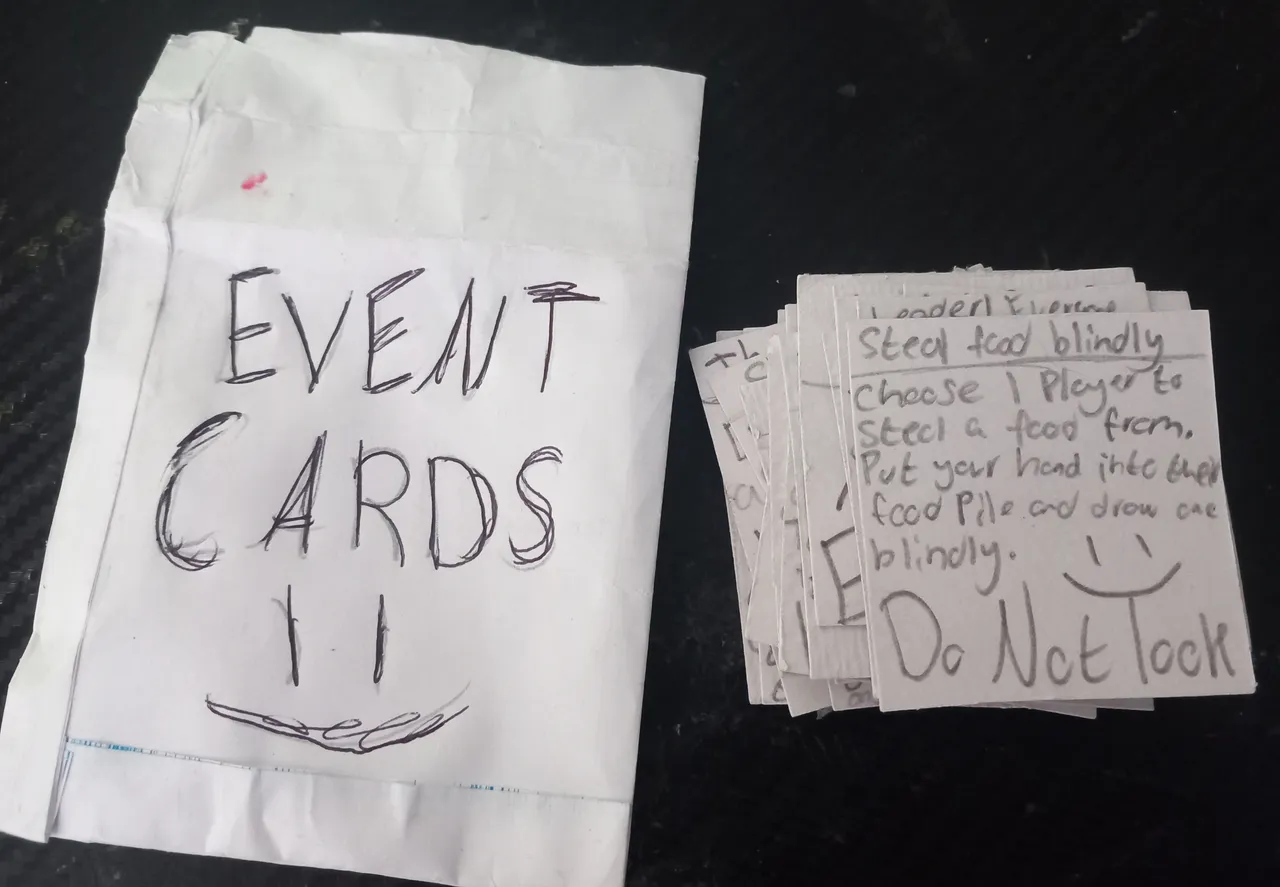 EVENT
CARDS
Steal food blindly
Choose 1 Player to
Steal a food from.
Put your hand into their
food Pile and draw one
blindly.
Do Not Look
E